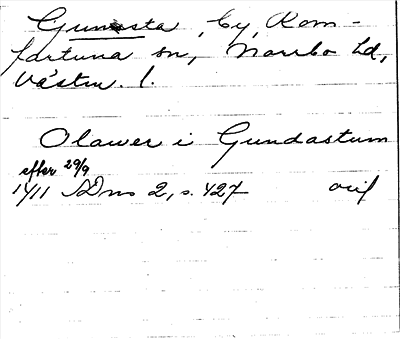 Gunnsta, by, Rom-
fartuna sn, Norrbo hd,
Västm. l.
Olawer i Gundastum
efter 29/9
1411 SDns 2, s. 427 orig